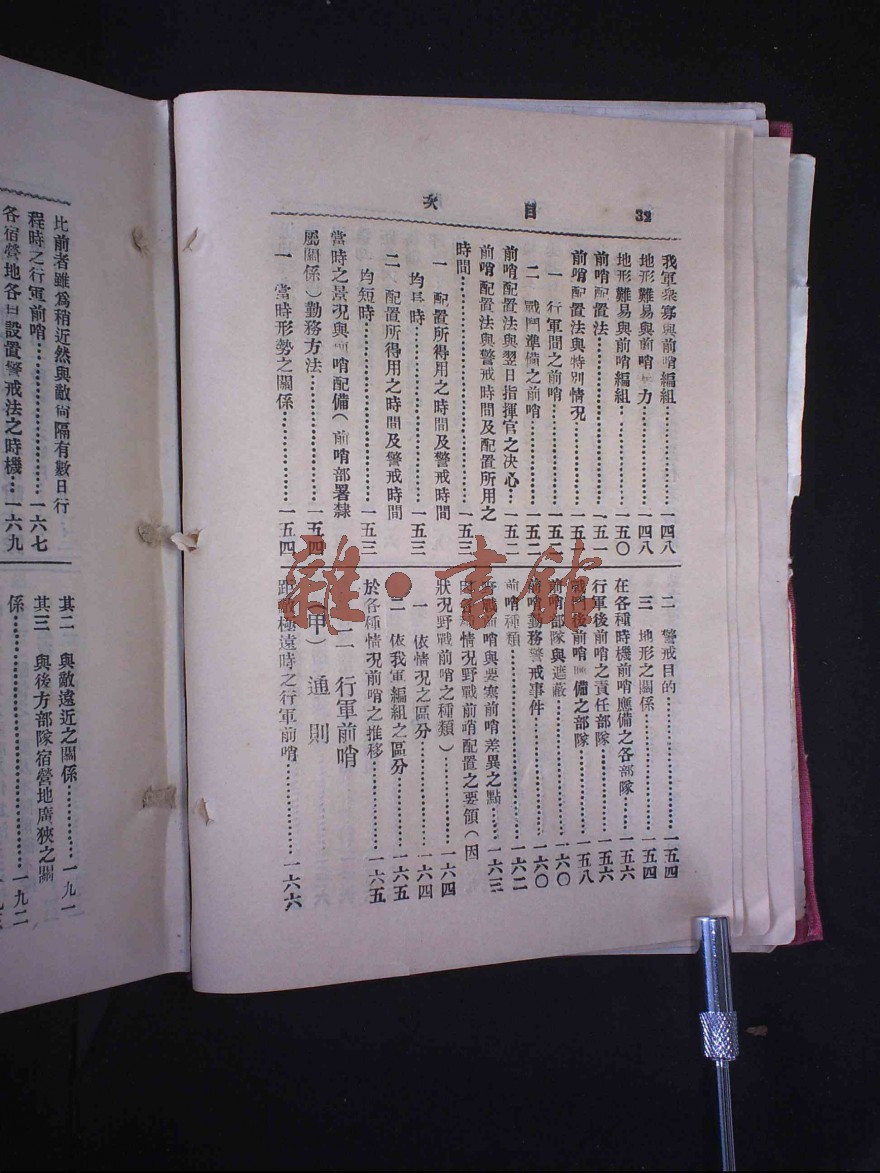 目次
32
我軍衆寡與前哨編組……一四八
地形難易與前哨力……一四八
地形難易與前哨編組……一五〇
前哨配置法……一五一
前哨配置法與特別情況……一五二
一 行軍間之前哨……一五二
二 戰鬥準備之前哨……一五二
前哨配置法與翌日指揮官之决心…一五二
前哨配置法與警戒時間及配置所用之
時間……一五三
一 配置所得用之時間及警戒時間
均長時……一五三
二 配置所得用之時間及警戒時間
均短時……一五三
當時之景況與前哨配備(前哨部署隸
屬關係)勤務方法……一五四
一 當時形勢之關係……一五四
二 警戒目的……一五四
三 地形之關係……一五四
在各種時機前哨應備之各部隊……一五六
行軍後前哨之責任部隊……一五六
戰鬥後前哨備之部隊……一五八
前哨部隊與遮蔽……一六〇
前哨勤務警戒事件……一六〇
前哨種類……一六二
野戰前哨與要寨前哨差異之點……一六三
因各種情況野戰前哨配置之要領(因
狀況野戰前哨之種類)……一六四
一 依情況之區分……一六四
二 依我軍編組之區分……一六五
於各種情況前哨之推移……一六五
二 行軍前哨
(甲) 通則
距敵極遠時之行軍前哨……一六六
比前者雖爲稍近然與敵尚隔有數日行
程時之行軍前哨……一六七
各宿營地各自設置警戒法之時機…一六九
其二 與敵遠近之關係……一九一
其三 與後方部隊宿營地廣狹之關
係……一九二
雜·書館